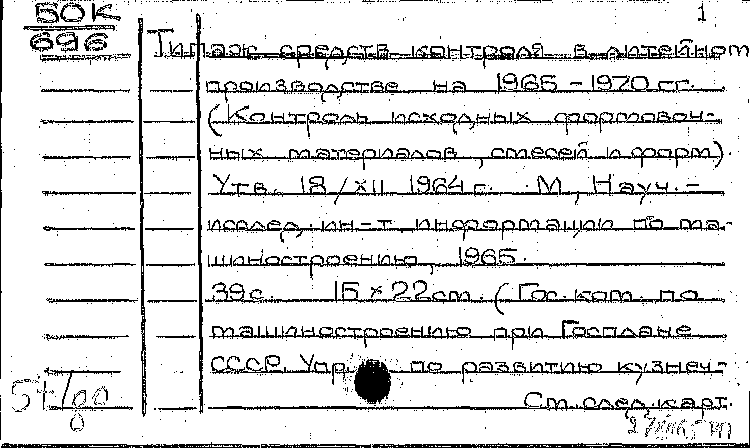 50К
696
1
Типаж средств контроля в литейном
производстве на 1965-1970 гг.
(Контроль исходных формовоч-
ных материалов, смесей и форм).
Утв. 18/XII 1964 г. М., Науч.-
исслед. ин-т информации по ма-
шиностроению, 1965.
39 с. 15 × 22 см. (Гос. ком. по
машиностроению при Госплане
СССР. Упр. по развитию кузнеч-
См. след. карт.